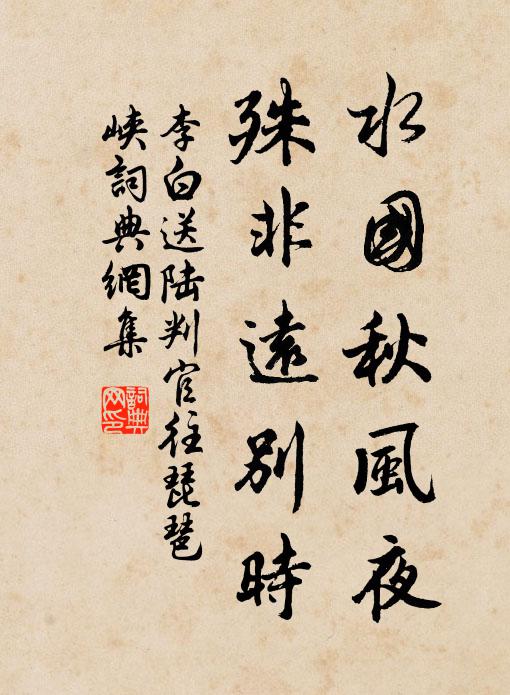 水國秋風夜
殊非遠別時
李白送陸判官往琵琶
峽詞典網集
詞典
网印